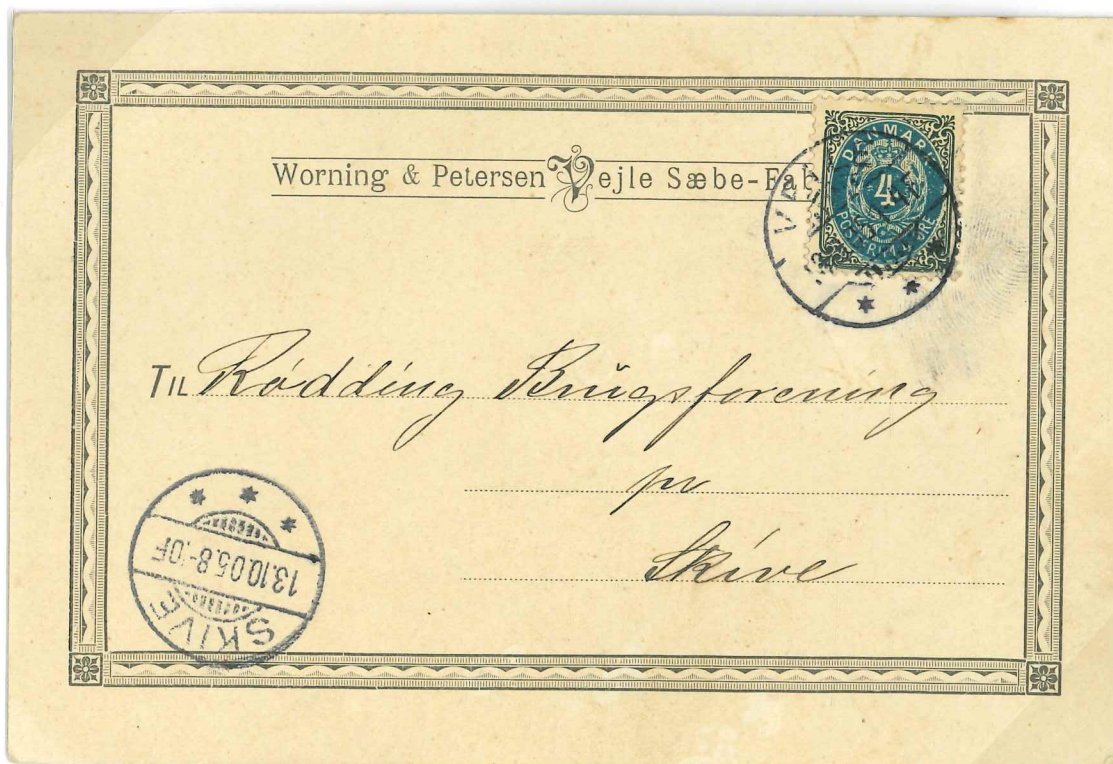 Worning & Petersen Vejle Sæbe-Fab
DANMARK
4
POSTFRIM. ØRE
Til Rødding Brugsforening
pr
Skive
13.10.05.8-10F
SKIVE